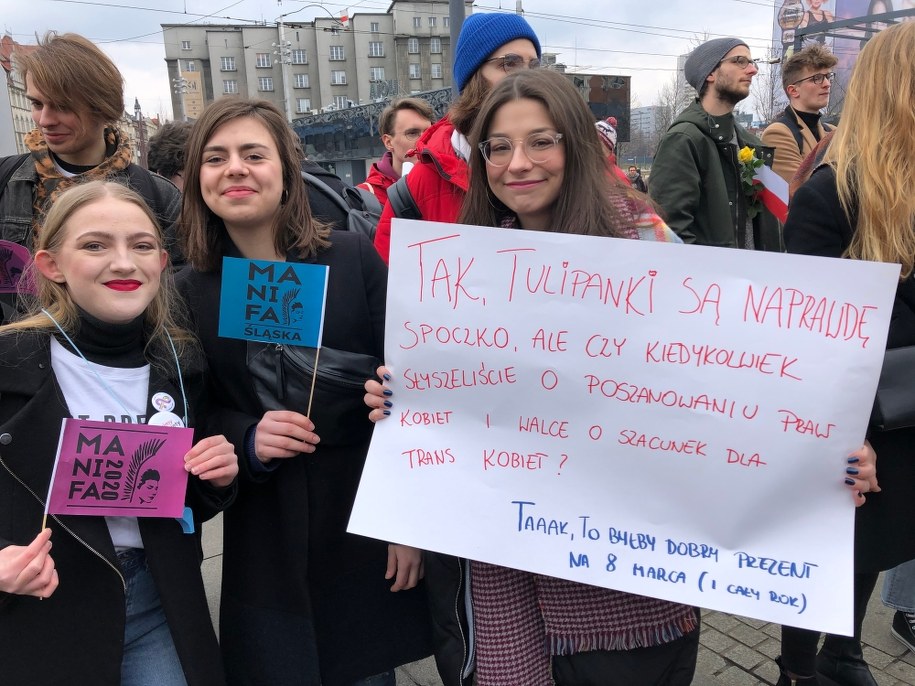 MA
NI
FA
ŚLĄSKA
MA
NI
FA
2020
TAK, TULIPANKI SĄ NAPRAWDĘ
SPOCZKO, ALE CZY KIEDYKOLWIEK
SŁYSZELIŚCIE O POSZANOWANIU PRAW
KOBIET I WALCE O SZACUNEK DLA
TRANS KOBIET?
TAAAK, TO BYŁBY DOBRY PREZENT
NA 8 MARCA (I CAŁY ROK)